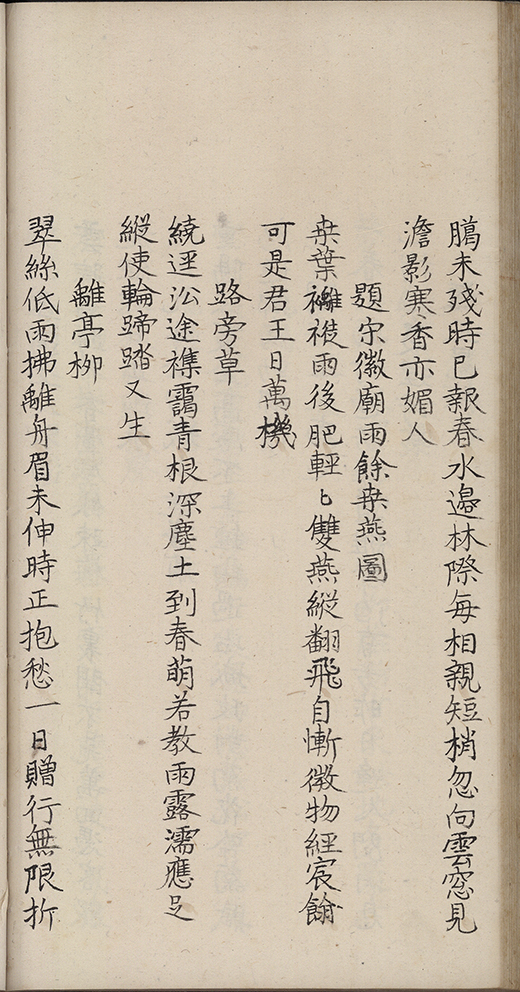 臈未殘時已報春水邉林際每相親短梢忽向雲窓見
澹影寒香亦媚人
題宋徽廟雨餘桒燕圖
桒葉襹褷雨後肥輕〻雙燕縱翻飛自慚微物經宸翰
可是君王日萬機
路旁草
繞逕沿途襍靄青根深塵土到春萌若教雨露濡應足
縱使輪蹄踏又生
離亭柳
翠絲低雨拂離舟眉未伸時正抱愁一日贈行無限折